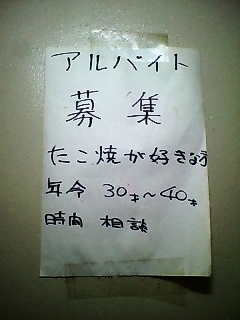 アルバイト
募集
たこ焼が好きな方
年令 30才~40才
時間 相談